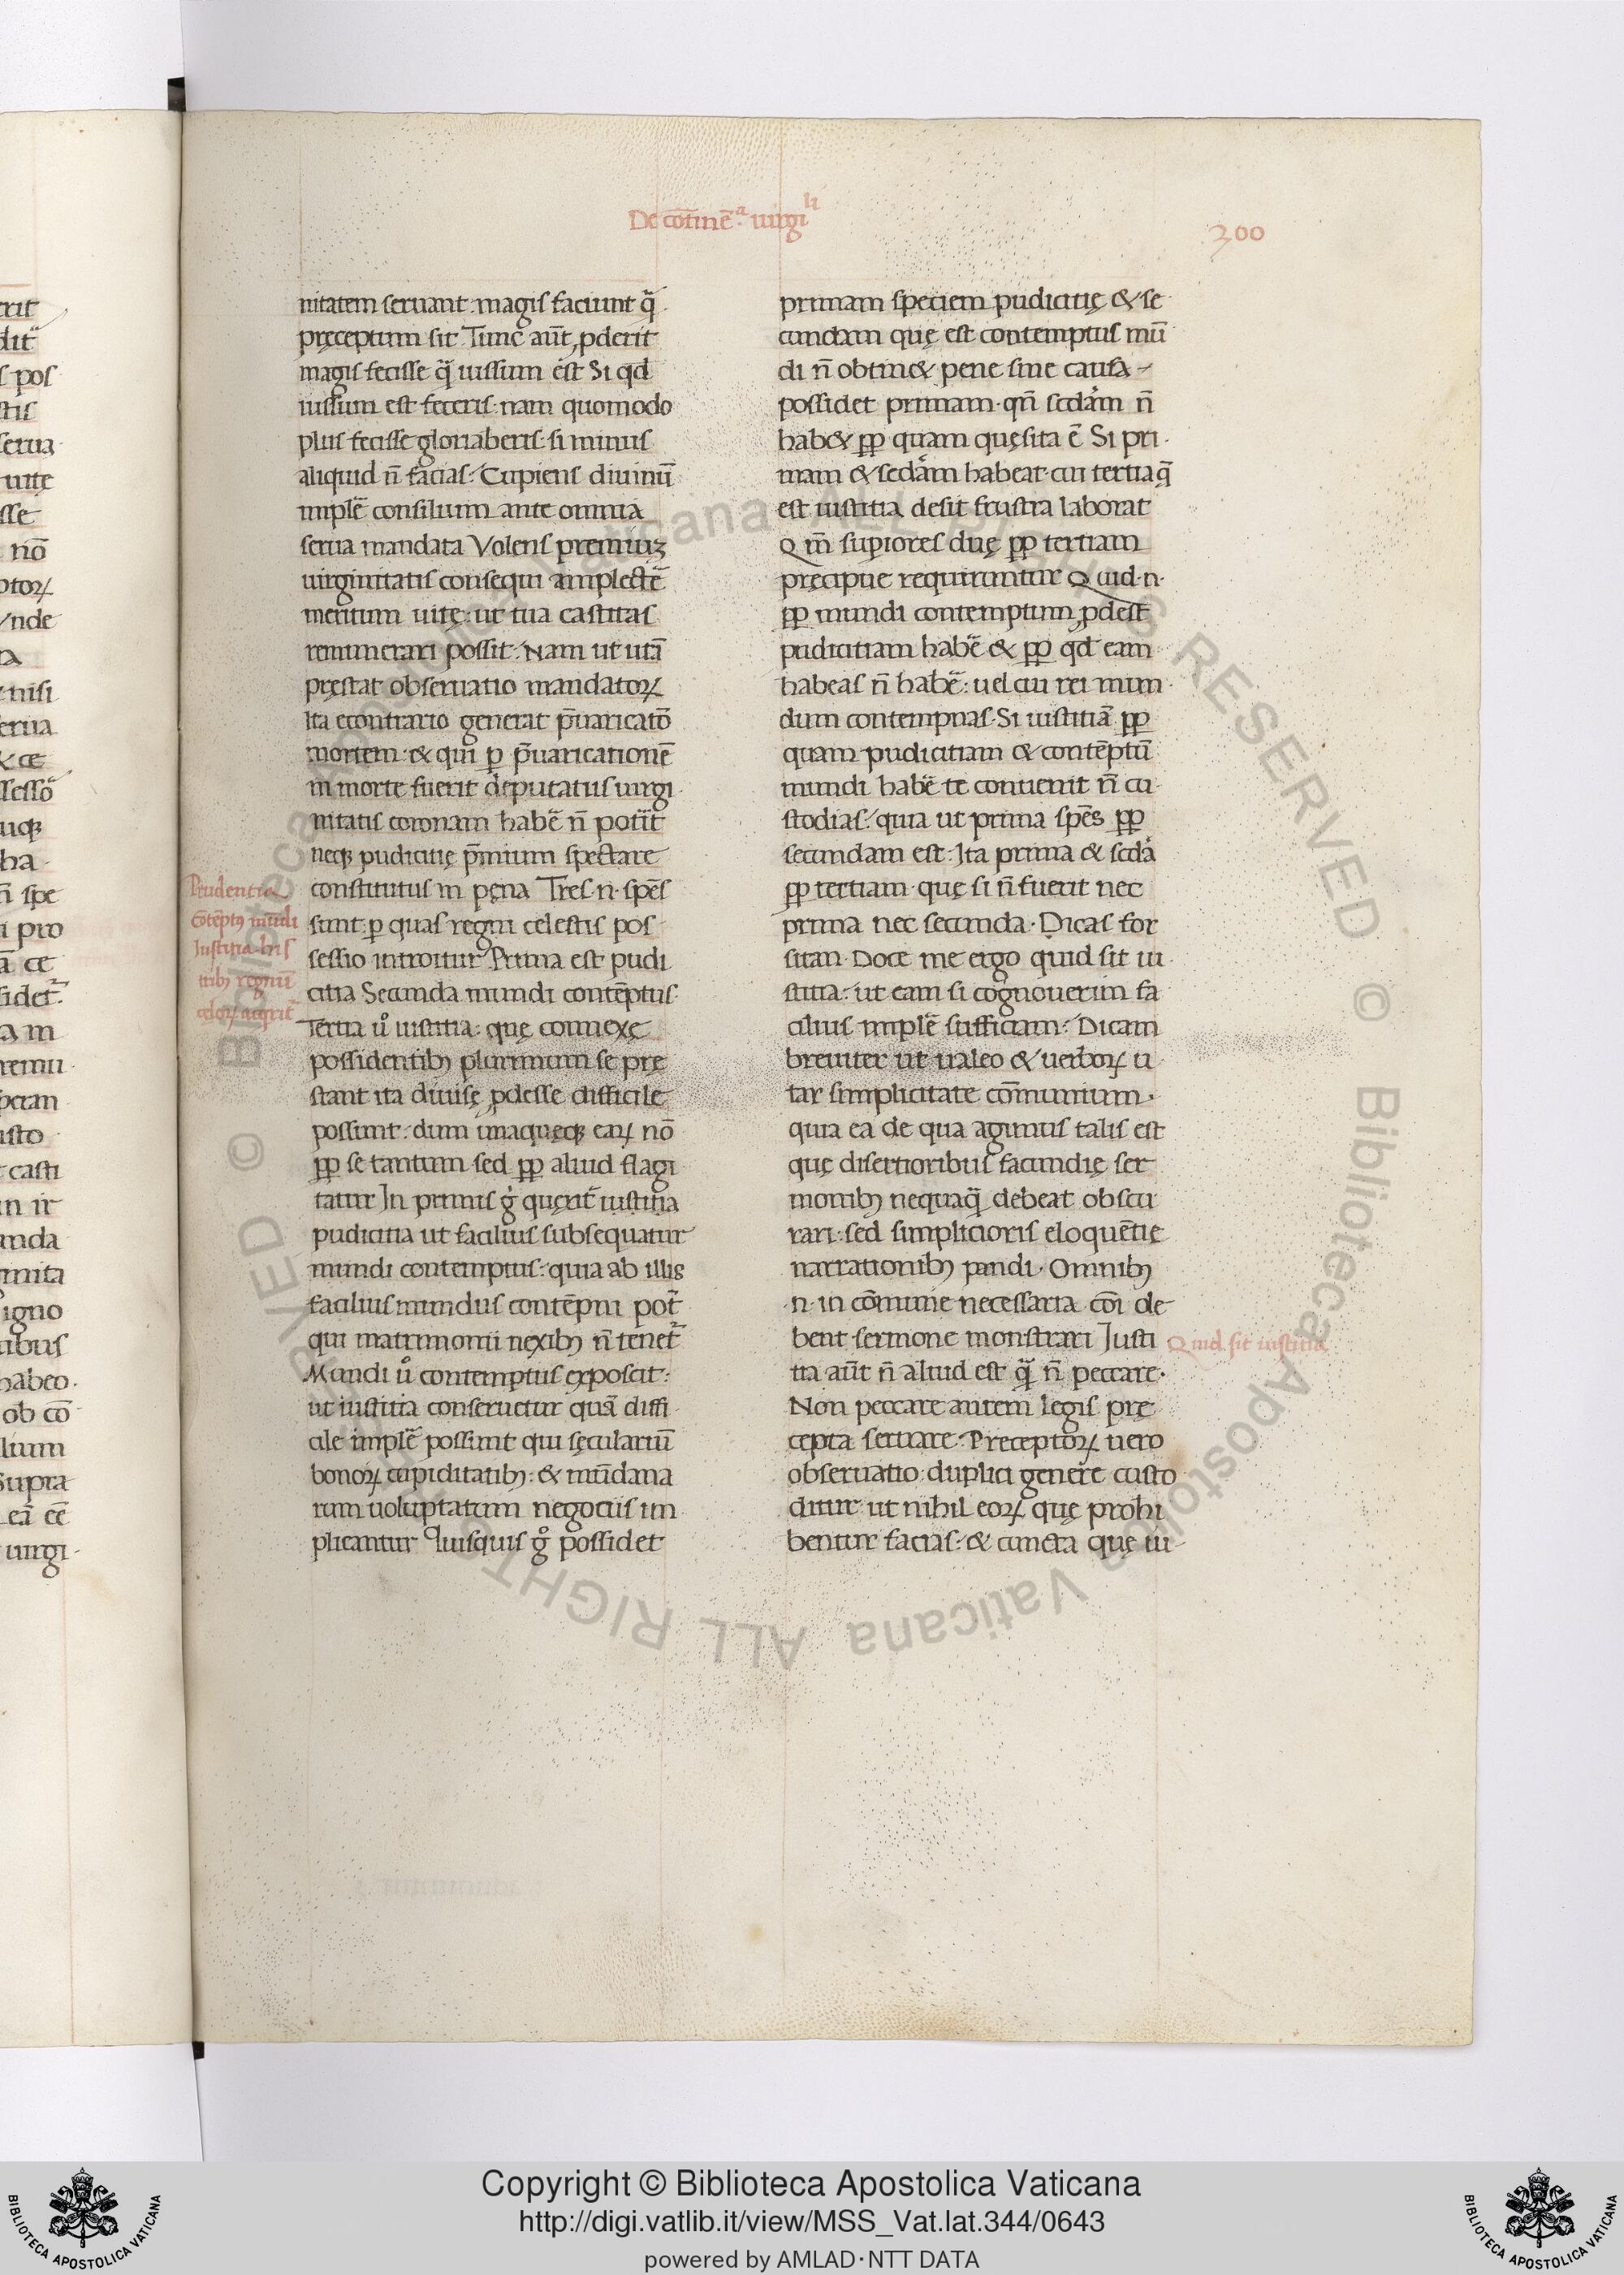 De cōtinē.ᵃ uirgiˡⁱ
300
nitatem seruant: magis faciunt q̄
pręceptum sit Tunc aūt ꝓderit
magis fecisse q̄ iussum est Si qd
iussum est feceris· nam quomodo
plus fecisse gloriaberis· si minus
aliquid n̄ facias: Cupiens diuinū
implē consilium ante omnia
serua mandata Volens premiuꝫ
uirginitatis consequi amplectē
meritum uitę: ut tua castitas
remunerari possit: Nam ut uitā
pręstat obseruatio mandatoꝝ
Ita econtrario generat p̄uaricatō
mortem: & qui ꝑ p̄uaricationē
in morte fuerit deputatus uirgi
nitatis coronam habē n̄ potit
neqꝫ pudicitię p̄mium spectare
constitutus in pęna Tres·n·spēs
sunt: ꝑ quas regni celestis pos
sessio introitur Prima est pudi
citia Secunda mundi contēptus·
Tertia u̓ iustitia: quę connexę
possidentibꝫ plurimum se prę
stant ita diuisę ꝓdesse difficile
possunt: dum unaquęqꝫ eaꝝ nō
ꝑꝑ se tantum sed ꝑꝑ aliud flagi
tatur In primis g̓ quęrit̄ iustitia
pudicitia ut facilius subsequatur
mundi contemptus: quia ab illis
facilius mundus contēpni pot̄
qui matrimonii nexibꝫ n̄ tenet̄
Mundi u̓ contemptus exposcit:
ut iustitia conseruetur quā diffi
cile implē possunt qui sęculariū
bonoꝝ cupiditatibꝫ: & mūdana
rum uoluptatum negociis im
plicantur Quisquis g̊ possidet
Prudentia
cōtēptꝰ mūdi
Iustitia hris
tribꝫ regnū
celoꝝ aq̄rit̄
primam speciem pudicitię & se
cundam quę est contemptus mū
di n̄ obtin& pene sine causa
possidet primam· qn̄ scdam n̄
hab& ꝑꝑ quam quęsita ē Si pri
mam & scdam habeat· cui tertia q̄
est iustitia desit frustra laborat
Qm̄ supiores duę ꝑꝑ tertiam
pręcipue requiruntur Quid·n·
ꝑꝑ mundi contemptum ꝓdest
pudicitiam habē & ꝑꝑ qd eam
habeas n̄ habē: uel cui rei mun
dum contempnas· Si iustitiā ꝑꝑ
quam pudicitiam & contēptū
mundi habē te conuenit n̄ cu
stodias: quia ut prima spēs ꝑꝑ
secundam est: Ita prima & scda
ꝑꝑ tertiam· que si n̄ fuerit nec
prima nec secunda· Dicas for
sitan· Doce me ergo quid sit iu
stitia: ut eam si cognouerim fa
cilius implē sufficiam: Dicam
breuiter ut ualeo & uerboꝝ u
tar simplicitate cōmunium·
quia ea de qua agimus talis est
quę disertioribus facundię ser
monibꝫ nequaq̄ debeat obscu
rari: sed simplicioris eloquētię
narrationibꝫ pandi· Omnibꝫ
·n· in cōmune necessaria cōi de
bent sermone monstrari Justi
tia aūt n̄ aliud est q̄ n̄ peccare·
Non peccare autem legis pre
cepta seruare: Preceptoꝝ uero
obseruatio duplici genere custo
ditur ut nihil eoꝝ quę prohi
bentur facias: & cuncta quę iu
Quid sit iustitia
© Biblioteca Apostolica Vaticana ALL RIGHTS RESERVED © Biblioteca Apostolica Vaticana ALL RIGHTS RESERVED
Copyright © Biblioteca Apostolica Vaticana
http://digi.vatlib.it/view/MSS_Vat.lat.344/0643
powered by AMLAD·NTT DATA
BIBLIOTECA APOSTOLICA VATICANA
BIBLIOTECA APOSTOLICA VATICANA